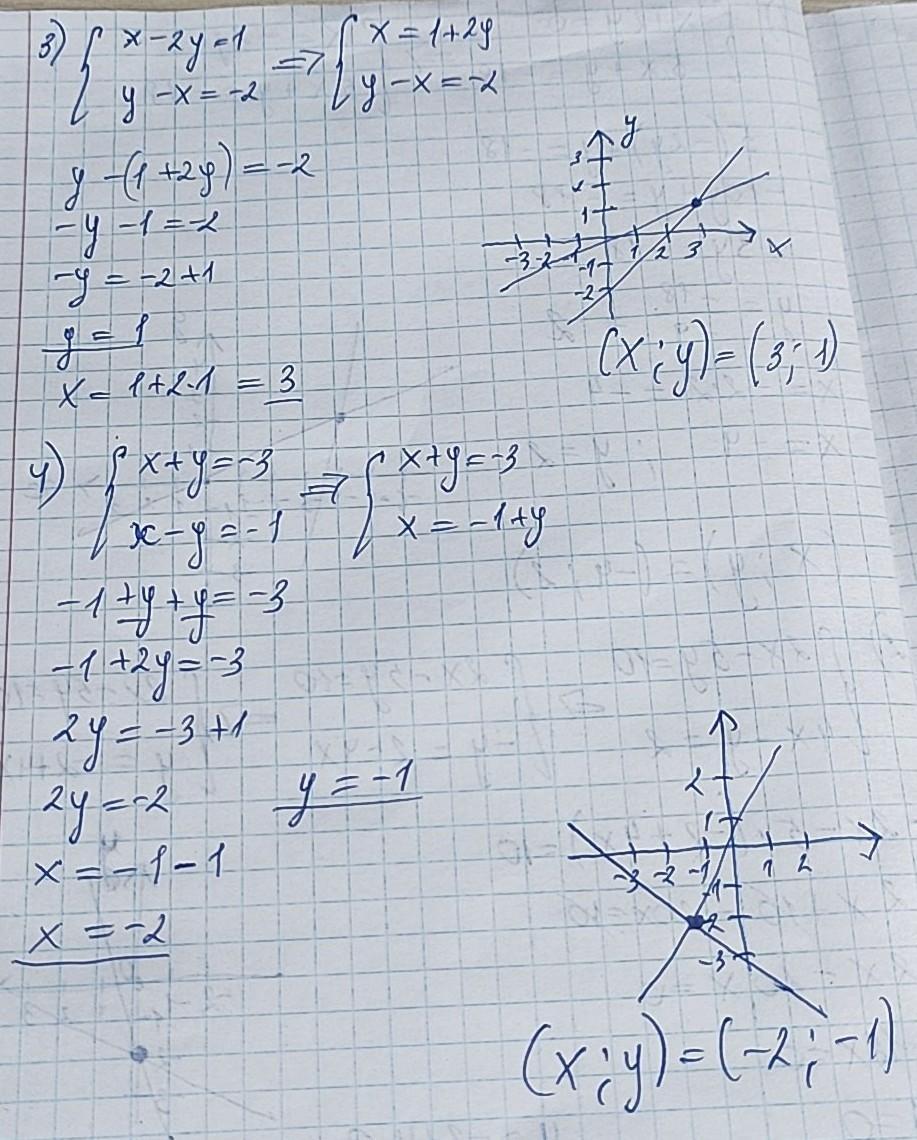 3) { x - 2y = 1 ⇒ { x = 1 + 2y
y - x = -2 y - x = -2
y - (1 + 2y) = -2
-y - 1 = -2
-y = -2 + 1
y = 1
x = 1 + 2·1 = 3
y
3
2
1
-3 -2 -1 1 2 3 x
-1
-2
(x ; y) = (3 ; 1)
4) { x + y = -3 ⇒ { x + y = -3
x - y = -1 x = -1 + y
-1 + y + y = -3
-1 + 2y = -3
2y = -3 + 1
2y = -2 y = -1
x = -1 - 1
x = -2
2
1
-3 -2 -1 1 2
-1
-2
-3
(x ; y) = (-2 ; -1)